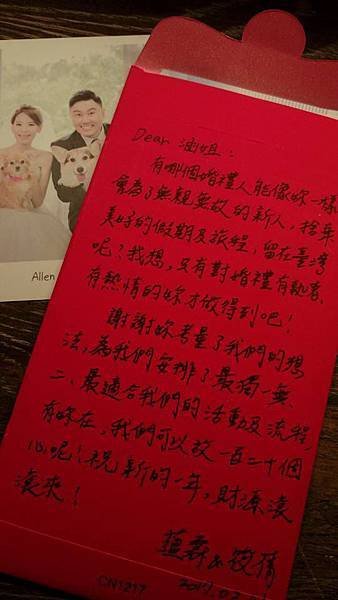 Allen
Dear 油姐:
有哪個婚禮人能像妳一樣
會為了無親無故的新人,捨棄
美好的假期及旅程,留在臺灣
呢?我想,只有對婚禮有執著、
有熱情的妳才做得到吧!
謝謝妳考量了我們的想
法,為我們安排了最獨一無
二、最適合我們的活動及流程,
有妳在,我們可以放一百二十個
心呢!祝新的一年,財源滾
滾來!
筱倩
CN1217
2017.02